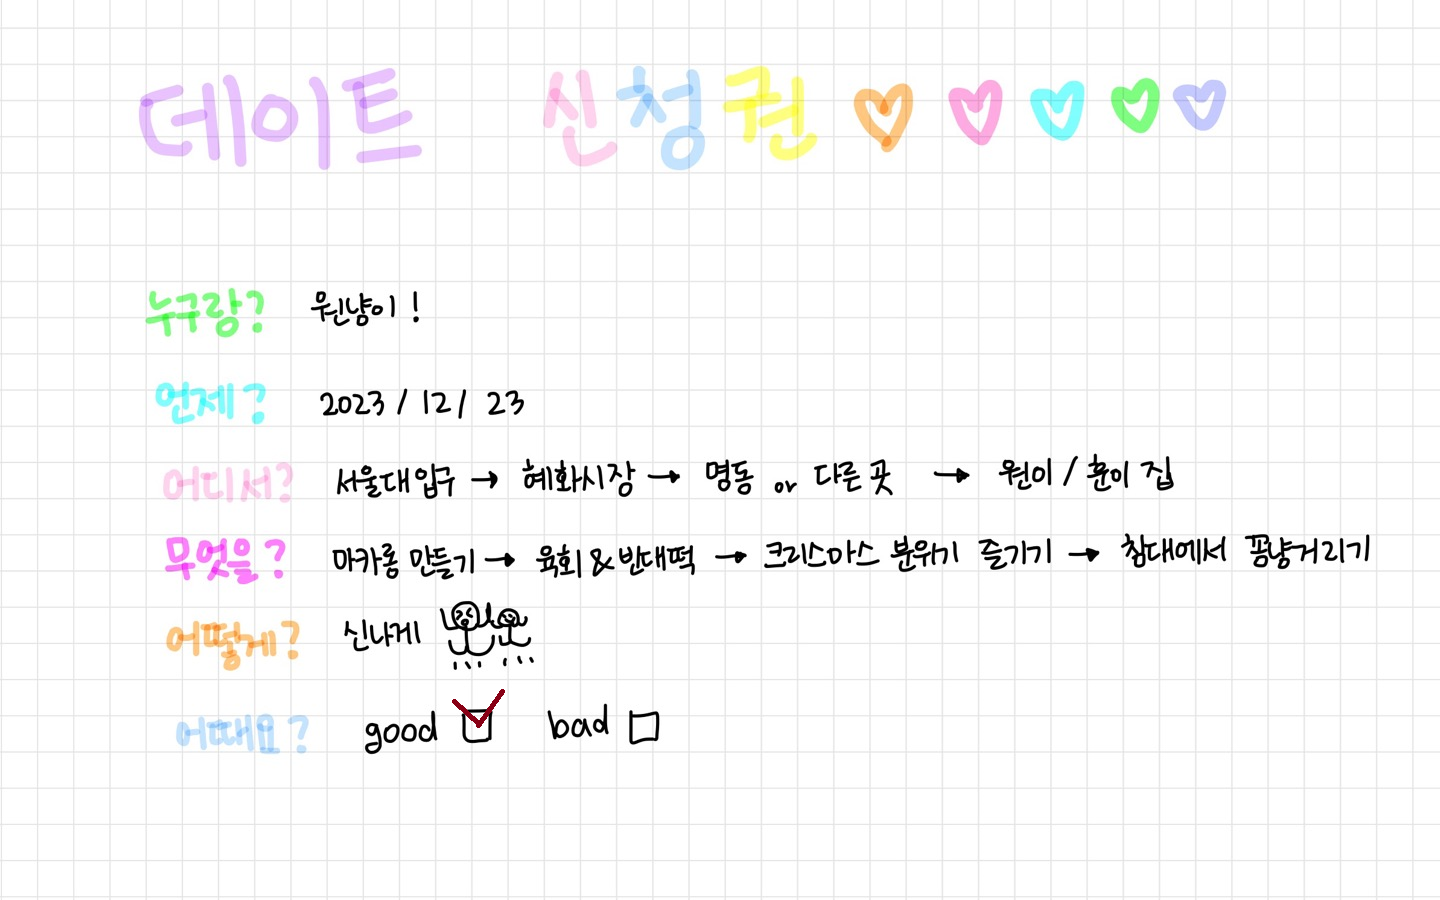 데이트 신청권
누구랑? 원냥이!
언제? 2023/12/ 23
어디서? 서울대입구 → 혜화시장 → 명동 or 다른 곳 → 원이 / 훈이 집
무엇을? 마카롱 만들기 → 육회 & 빈대떡 → 크리스마스 분위기 즐기기 → 침대에서 꽁냥거리기
어떻게? 신나게
어때요? good bad